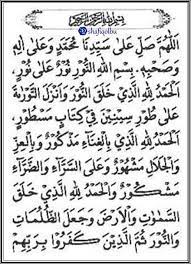 بِسْمِ اللهِ الرَّحْمٰنِ الرَّحِيْمِ
shafiqolbu
اَللّٰهُمَّ صَلِّ عَلٰى سَيِّدِنَا مُحَمَّدٍ وَعَلٰى اٰلِهِ
وَصَحْبِهِ. بِسْمِ اللهِ النُّوْرِ نُوْرٌ عَلٰى نُوْرٍ.
اَلْحَمْدُ لِلّٰهِ الَّذِيْ خَلَقَ النُّوْرَ وَاَنْزَلَ التَّوْرَاةَ
عَلٰى طُوْرِ سِيْنِيْنَ فِيْ كِتَابٍ مَسْطُوْرٍ.
اَلْحَمْدُ لِلّٰهِ الَّذِيْ بِالْغِنَاءِ مَذْكُوْرٌ وَبِالْعِزِّ
وَالْجَلَالِ مَشْهُوْرٌ وَعَلَى السَّرَّاءِ وَالضَّرَّاءِ
مَشْكُوْرٌ وَالْحَمْدُ لِلّٰهِ الَّذِيْ خَلَقَ
السَّمٰوٰتِ وَالْاَرْضَ وَجَعَلَ الظُّلُمَاتِ
وَالنُّوْرَ ثُمَّ الَّذِيْنَ كَفَرُوْا بِرَبِّهِمْ